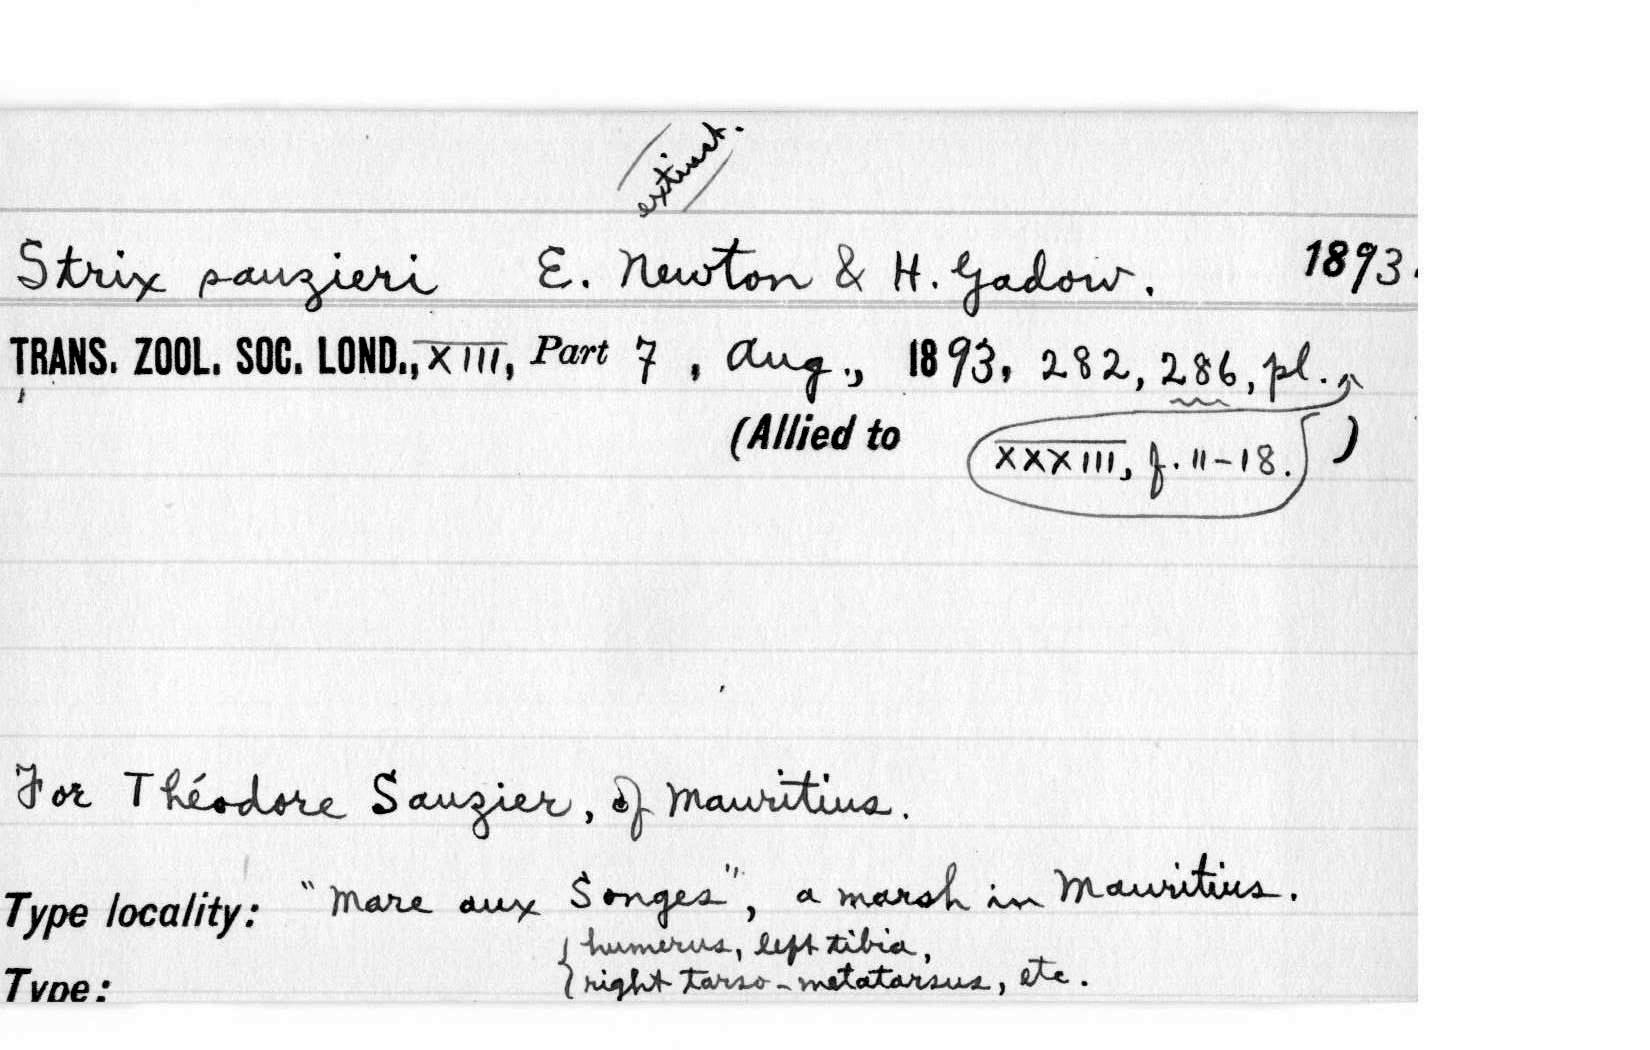 extinct.
Strix sauzieri E. Newton & H. Gadow. 1893.
TRANS. ZOOL. SOC. LOND., XIII, Part 7, Aug., 1893, 282, 286, pl.
(Allied to XXXIII, f. 11-18. )
For Théodore Sauzier, of Mauritius.
Type locality: "Mare aux Songes", a marsh in Mauritius.
{ humerus, left tibia,
Type: { right tarso-metatarsus, etc.